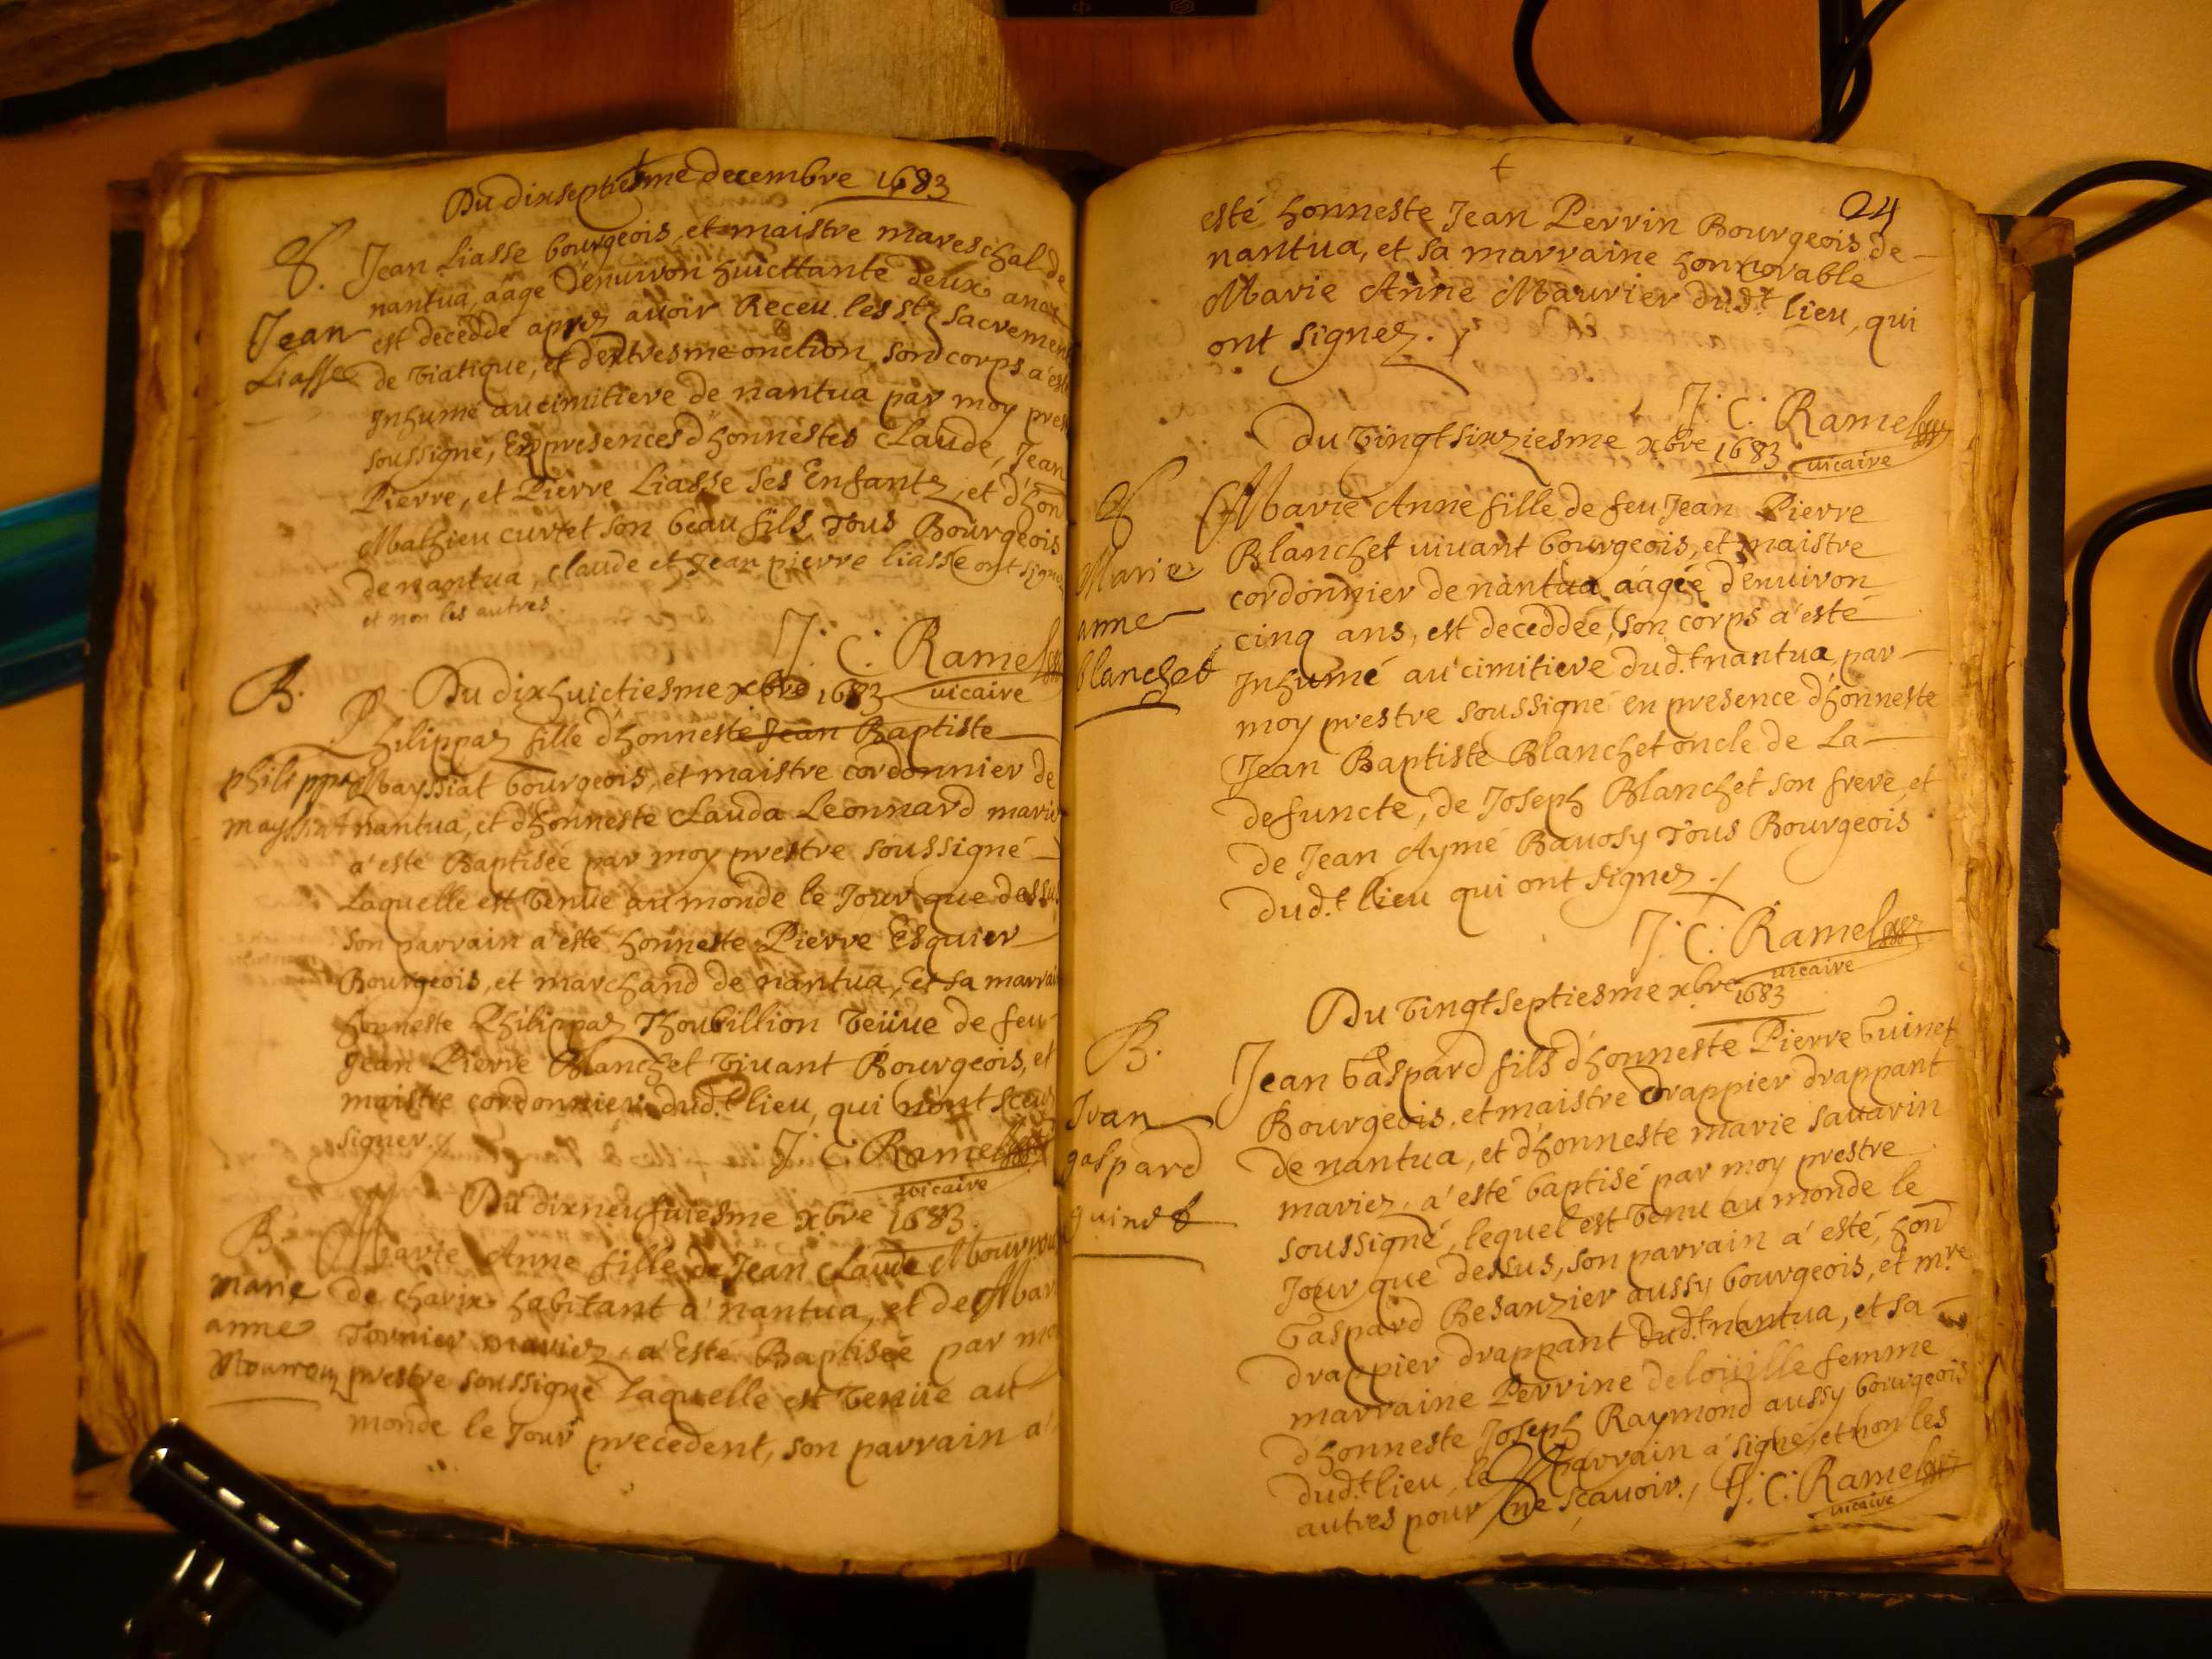 Du dixseptiesme decembre 1683
Jean Liasse bourgeois et maistre mareschal de
nantua, aagé d'enuiron huicttante deux ans
Jean
est decedde aprez auoir Receu les sts sacremen
Liasse
de viatique, et d'extresme onction, son corps a esté
Inhumé au cimitiere de nantua par moy pres
soussigné, En presences d'honnestes Claude, Jean
Pierre, et Pierre Liasse ses Enfantz, et d'hon
Mathieu curtet son beau fils Tous Bourgeois
de nantua, claude et Jean pierre liasse ont signé
et non les autres.
J. C. Ramel
vicaire
B.
Du dixhuictiesme xbre 1683
Philippaz fille d'honneste Jean Baptiste
philippa
Mayssiat bourgeois, et maistre cordonnier de
mayssiat
nantua, et d'honneste Clauda Leonnard mariez
a esté Baptisée par moy prestre soussigné
Laquelle est venue au monde le Jour que dessus
son parrain a esté honneste Pierre Esquier
Bourgeois, et marchand de nantua, et sa marrai
honneste Philippaz Thoubillion veüue de feu
Jean Pierre Blanchet viuant Bourgeois, et
maistre cordonnier dud.t lieu, qui n'ont sceu
signer.
J. C. Ramel
vicaire
Du dixneufuiesme xbre 1683
B.
Marie Anne fille de Jean Claude Mourrou
marie
de charix habitant a nantua, et de Mar
anne
Tornier mariez, a Esté Baptisée par mo
Mourrou
prestre soussigné laquelle est venüe au
monde le Jour precedent, son parrain a
24
esté honneste Jean Perrin Bourgeois de
nantua, et sa marraine honnorable
Marie Anne Maurier dud.t lieu, qui
ont signez.
J. C. Ramel
vicaire
Du vingtsixziesme xbre 1683
Marie Anne fille de feu Jean Pierre
Marie
Blanchet viuant bourgeois, et maistre
cordonnier de nantua aagée d'enuiron
anne
cinq ans, est deceddée, son corps a esté
blanchet
Inhumé au cimitiere dud.t nantua par
moy prestre soussigné en presence d'honneste
Jean Baptiste Blanchet oncle de La
defuncte, de Joseph Blanchet son frere, et
de Jean Aymé Bauosy Tous Bourgeois
dud.t lieu qui ont signez.
J. C. Ramel
vicaire
Du vingtseptiesme xbre
1683
B.
Jean Gaspard fils d'honneste Pierre Guinet
Jean
Bourgeois, et maistre drappier drappant
gaspard
de nantua, et d'honneste marie sauarin
guinet
mariez, a esté baptisé par moy prestre
soussigné, lequel est venu au monde le
Jour que dessus, son parrain a esté, hon
Gaspard Besanzier aussy bourgeois, et m.re
drappier drappant dud.t nantua, et sa
marraine Perrine deloüille femme
d'honneste Joseph Raymond aussy bourgeois
dud.t lieu, le parrain a signé, et non les
autres pour ne sçauoir.
J. C. Ramel
vicaire